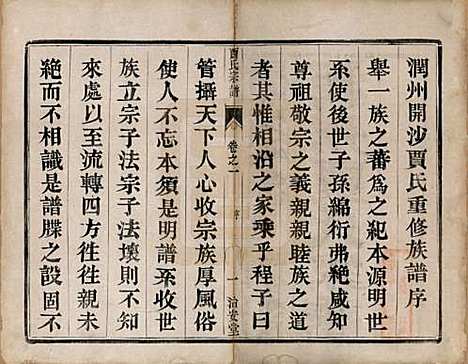 潤州開沙賈氏重修族譜序
舉一族之蕃為之紀本源明世
系使後世子孫綿衍弗絶咸知
尊祖敬宗之義親親睦族之道
者其惟相沿之家乘乎程子曰
賈氏宗譜 卷之一 序 一 治安堂
管攝天下人心收宗族厚風俗
使人不忘本須是明譜系收世
族立宗子法宗子法壞則人不知
來處以至流轉四方徃徃親未
絶而不相識是譜牒之設固不